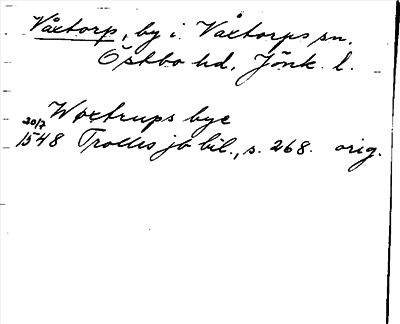 Våxtorp, by i Våxtorps sn.
Östbo hd. Jönk. l.
Woxtrups bye
20/7
1548 Trolles jb bil., s. 268. orig.